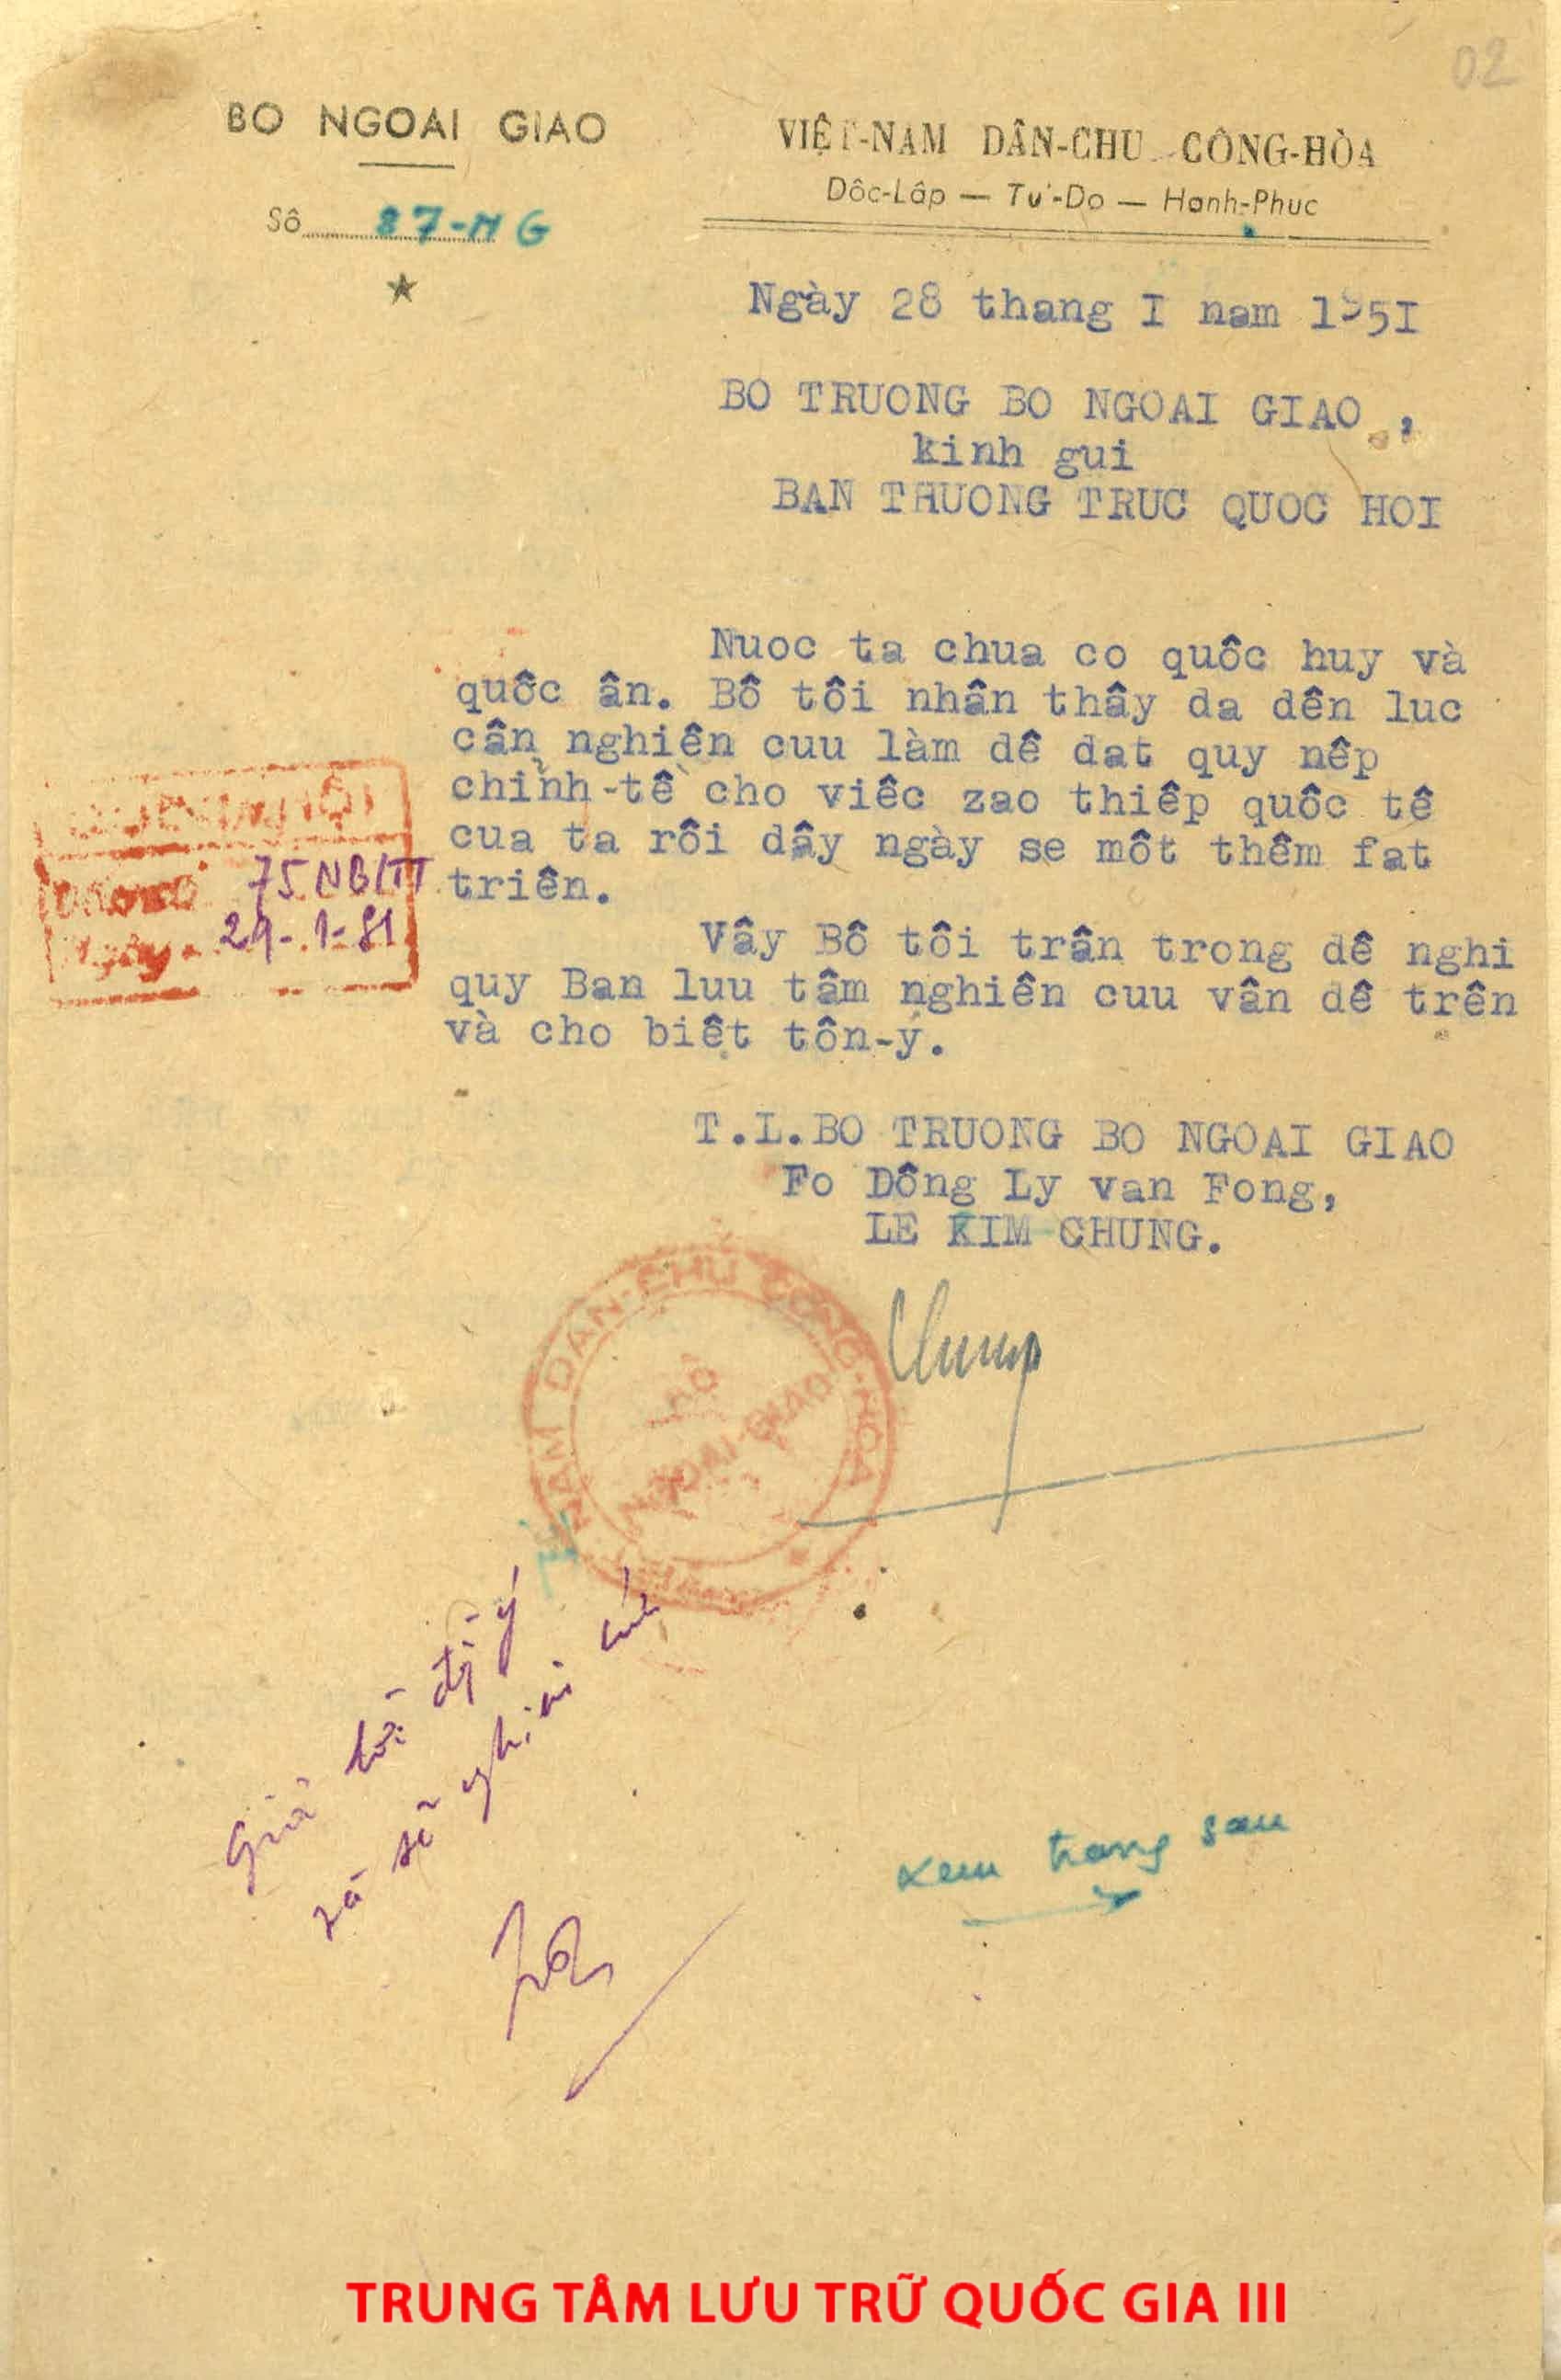 02
BO NGOAI GIAO
Số 87-NG
VIỆT-NAM DÂN-CHU CÔNG-HÒA
Dôc-Lâp — Tu'-Do — Hanh-Phuc
Ngày 28 thang I nam 195I
BO TRUONG BO NGOAI GIAO ,
kinh gui
BAN THUONG TRUC QUOC HOI
Nuoc ta chua co quôc huy và
quôc ân. Bô tôi nhân thây da dên luc
cân nghiên cuu làm dê dat quy nêp
chỉnh-tề cho viêc zao thiêp quôc tê
cua ta rôi dây ngày se môt thêm fat
triên.
75 NB/TT
29-1-51
Vây Bô tôi trân trong dê nghi
quy Ban luu tâm nghiên cuu vân dê trên
và cho biêt tôn-ý.
T.L.BO TRUONG BO NGOAI GIAO
Fo Dông Ly van Fong,
LE KIM CHUNG.
Chung
NAM DÂN-CHỦ CỘNG-HÒA
BỘ
NGOẠI-GIAO
và sẽ nghiên cứu
xem trang sau
TRUNG TÂM LƯU TRỮ QUỐC GIA III